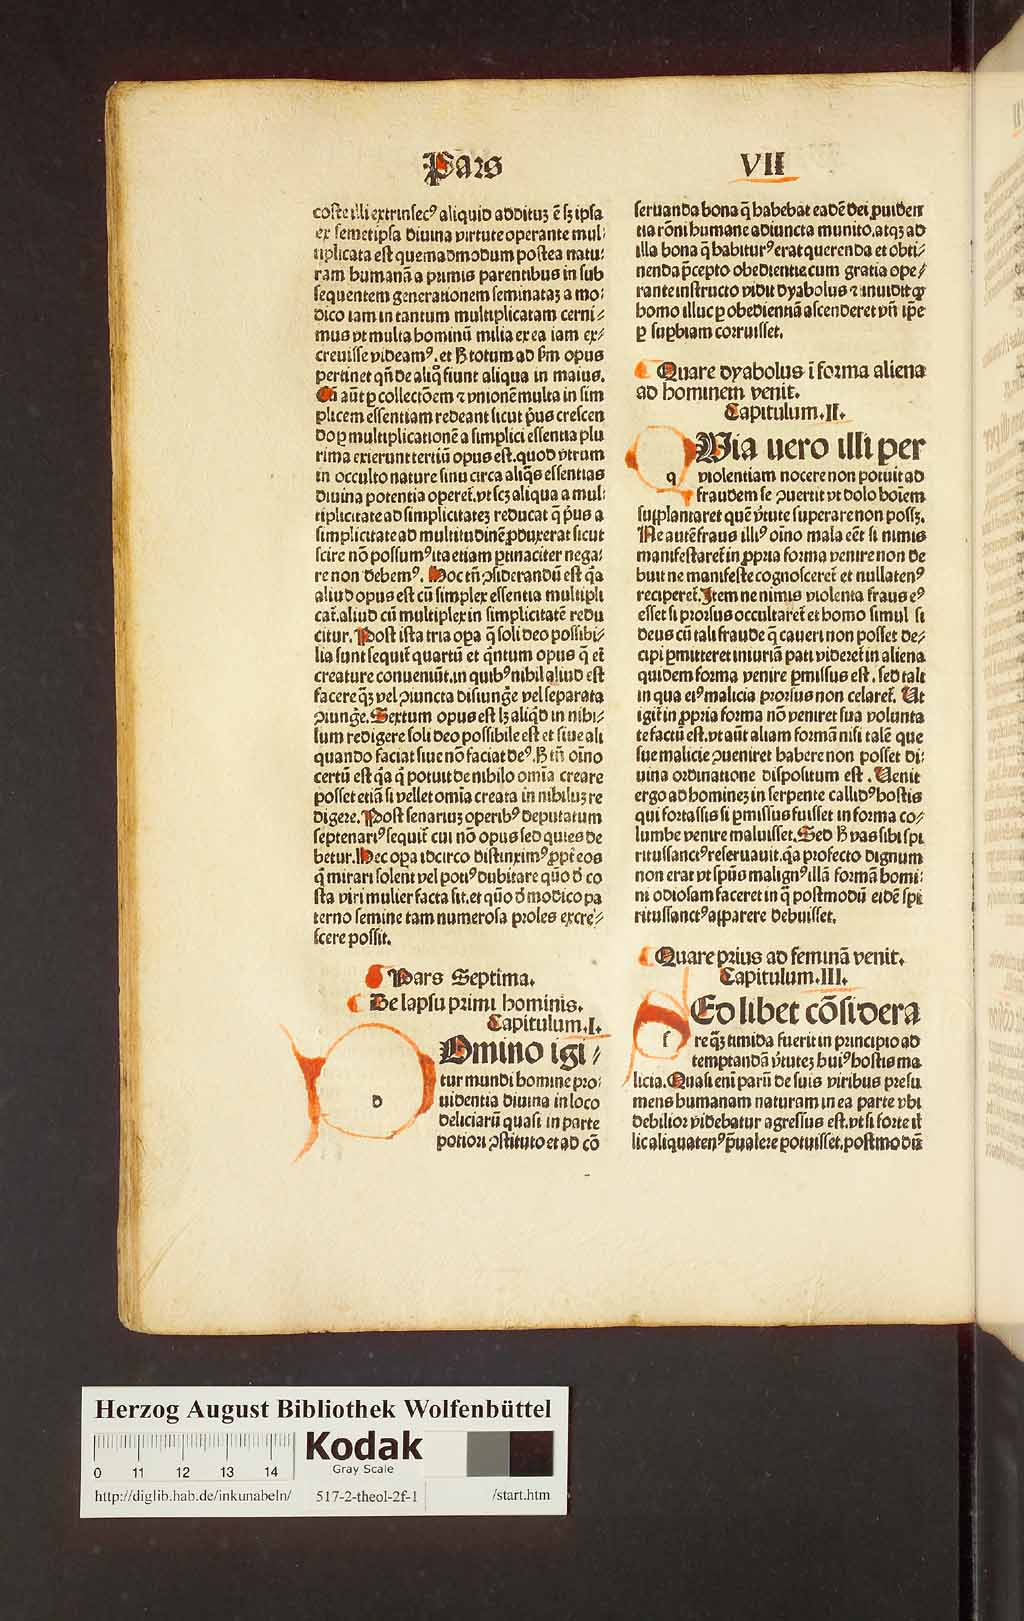 Pars
VII
coste illi extrinsecꝰ aliquid addituꝫ ē sꝫ ipsa
ex semetipsa diuina virtute operante mul⸗
tiplicata est quemadmodum postea natu⸗
ram humanā a primis parentibus in sub
sequentem generationem seminataꝫ a mo⸗
dico iam in tantum multiplicatam cerni⸗
mus vt multa hominū milia ex ea iam ex⸗
creuisse videamꝰ. et
totum ad
opus
pertinet qñ de
fiunt aliqua in maius.
Cū aūt ꝑ collectōem ⁊ vnionē multa in sim
plicem essentiam redeant sicut pͥus crescen
do ꝑ multiplicationē a simplici essentia plu
rima exierunt tertiū opus est. quod vtrum
in occulto nature sinu circa
essentias
diuina potentia operet᷑. vt scꝫ aliqua a mul⸗
tiplicitate ad simplicitateꝫ reducat q̄ pͥus a
simplicitate ad multitudinē ꝓduxerat sicut
scire nō possumꝰ ita etiam ꝑtinaciter nega⸗
re non debemꝰ. Hoc tñ ꝯsiderandū est qͥa
aliud opus est cū simplex essentia multipli
cat᷑. aliud cū multiplex in simplicitatē redu
citur. Post ista tria oꝑa q̄ soli deo possibi⸗
lia sunt sequit᷑ quartū et qͥntum opus q̄ et᷑
creature conueniūt. in quibꝰ nihil aliud est
facere qͣꝫ vel ꝯiuncta disiungͤe vel separata
ꝯiungͤe. Sextum opus est lꝫ aliqͥd in nihi⸗
lum redigere soli deo possibile est et siue ali
quando faciat siue nō faciat deꝰ.
tñ oīno
certū est qͥa q̄ potuit de nihilo omīa creare
posset etiā si vellet omīa creata in nihiluꝫ re
digere. Post senariuꝫ operibꝰ deputatum
septenariꝰ sequit᷑ cui nō opus sed quies de
betur. Hec oꝑa idcirco distinximꝰ ꝓpt᷑ eos
q̄ mirari solent vel potiꝰ dubitare quō d̄ co
sta viri mulier facta sit. et quō d̄ modico pa
terno semine tam numerosa proles excre⸗
scere possit.
Pars Septima.
De lapsu primi hominis.
Capitulum. I.
d
Omino igi⸗
tur mundi homine pro⸗
uidentia diuina in loco
deliciarū quasi in parte
potiori ꝯstituto et ad cō
seruanda bona q̄ habebat eadē dei ꝓuiden
tia rōni humane adiuncta munito. atqꝫ ad
illa bona q̄ habiturꝰ erat querenda et obti⸗
nenda p̄cepto obedientie cum gratia ope⸗
rante instructo vidit dyabolus ⁊ inuidit ꝙ
homo illuc ꝑ obedientiā ascenderet vn̄ ip̄e
ꝑ suꝑbiam corruisset.
Quare dyabolus ī forma aliena
ad hominem venit.
Capitulum. II.
q
VIia uero illi per
violentiam nocere non potuit ad
fraudem se ꝯuertit vt dolo hoīem
supplantaret quē vͥtute superare non possꝫ.
Ne autē fraus illiꝰ oīno mala eēt si nimis
manifestaret᷑ in ꝓpria forma venire non de
buit ne manifeste cognosceret᷑ et nullatenꝰ
reciperet᷑. Item ne nimis violenta fraus eꝰ
esset si prorsus occultaret᷑ et homo simul si
deus cū tali fraude q̄ caueri non posset de⸗
cipi ꝑmitteret iniuriā pati videret᷑ in aliena
quidem forma venire ꝑmissus est. sed tali
in qua eiꝰ malicia prorsus non celaret᷑. Ut
igit᷑ in ꝓpria forma nō veniret sua volunta
te factū est. vt aūt aliam formā nisi talē que
sue malicie ꝯueniret habere non posset di⸗
uina ordinatione dispositum est. Uenit
ergo ad homineꝫ in serpente callidꝰ hostis
qui fortassis si ꝑmissus fuisset in forma co⸗
lumbe venire maluisset. Sed
vas sibi spi
ritussanctꝰ reseruauit. qͥa profecto dignum
non erat vt spūs malignꝰ illā formā homi⸗
ni odiosam faceret in q̄ postmodū eidē spi
ritussanctꝰ apparere debuisset.
Quare prius ad feminā venit.
Capitulum. III.
s
Ed libet cōsidera
re qͣꝫ timida fuerit in principio ad
temptandā vͥtuteꝫ huiꝰ hostis ma
licia. Quasi eni᷑ parū de suis viribus presu
mens humanam naturam in ea parte vbi
debilior videbatur agressus est. vt si forte il
lic aliquatenꝰ p̄ualere potuisset. postmodū
Herzog August Bibliothek Wolfenbüttel
0 11 12 13 14
Kodak
Gray Scale
http://diglib.hab.de/inkunabeln/ 517-2-theol-2f-1 /start.htm